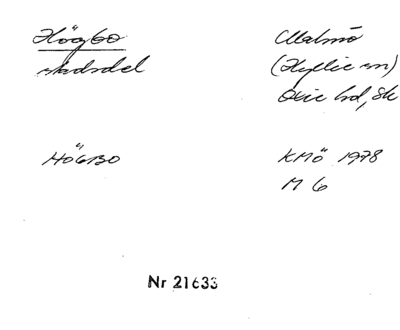 Högbo
stadsdel
Malmö
(Hyllie sn)
Oxie hd, Sk
HÖGBO
KMÖ 1978
M 6
Nr 21633